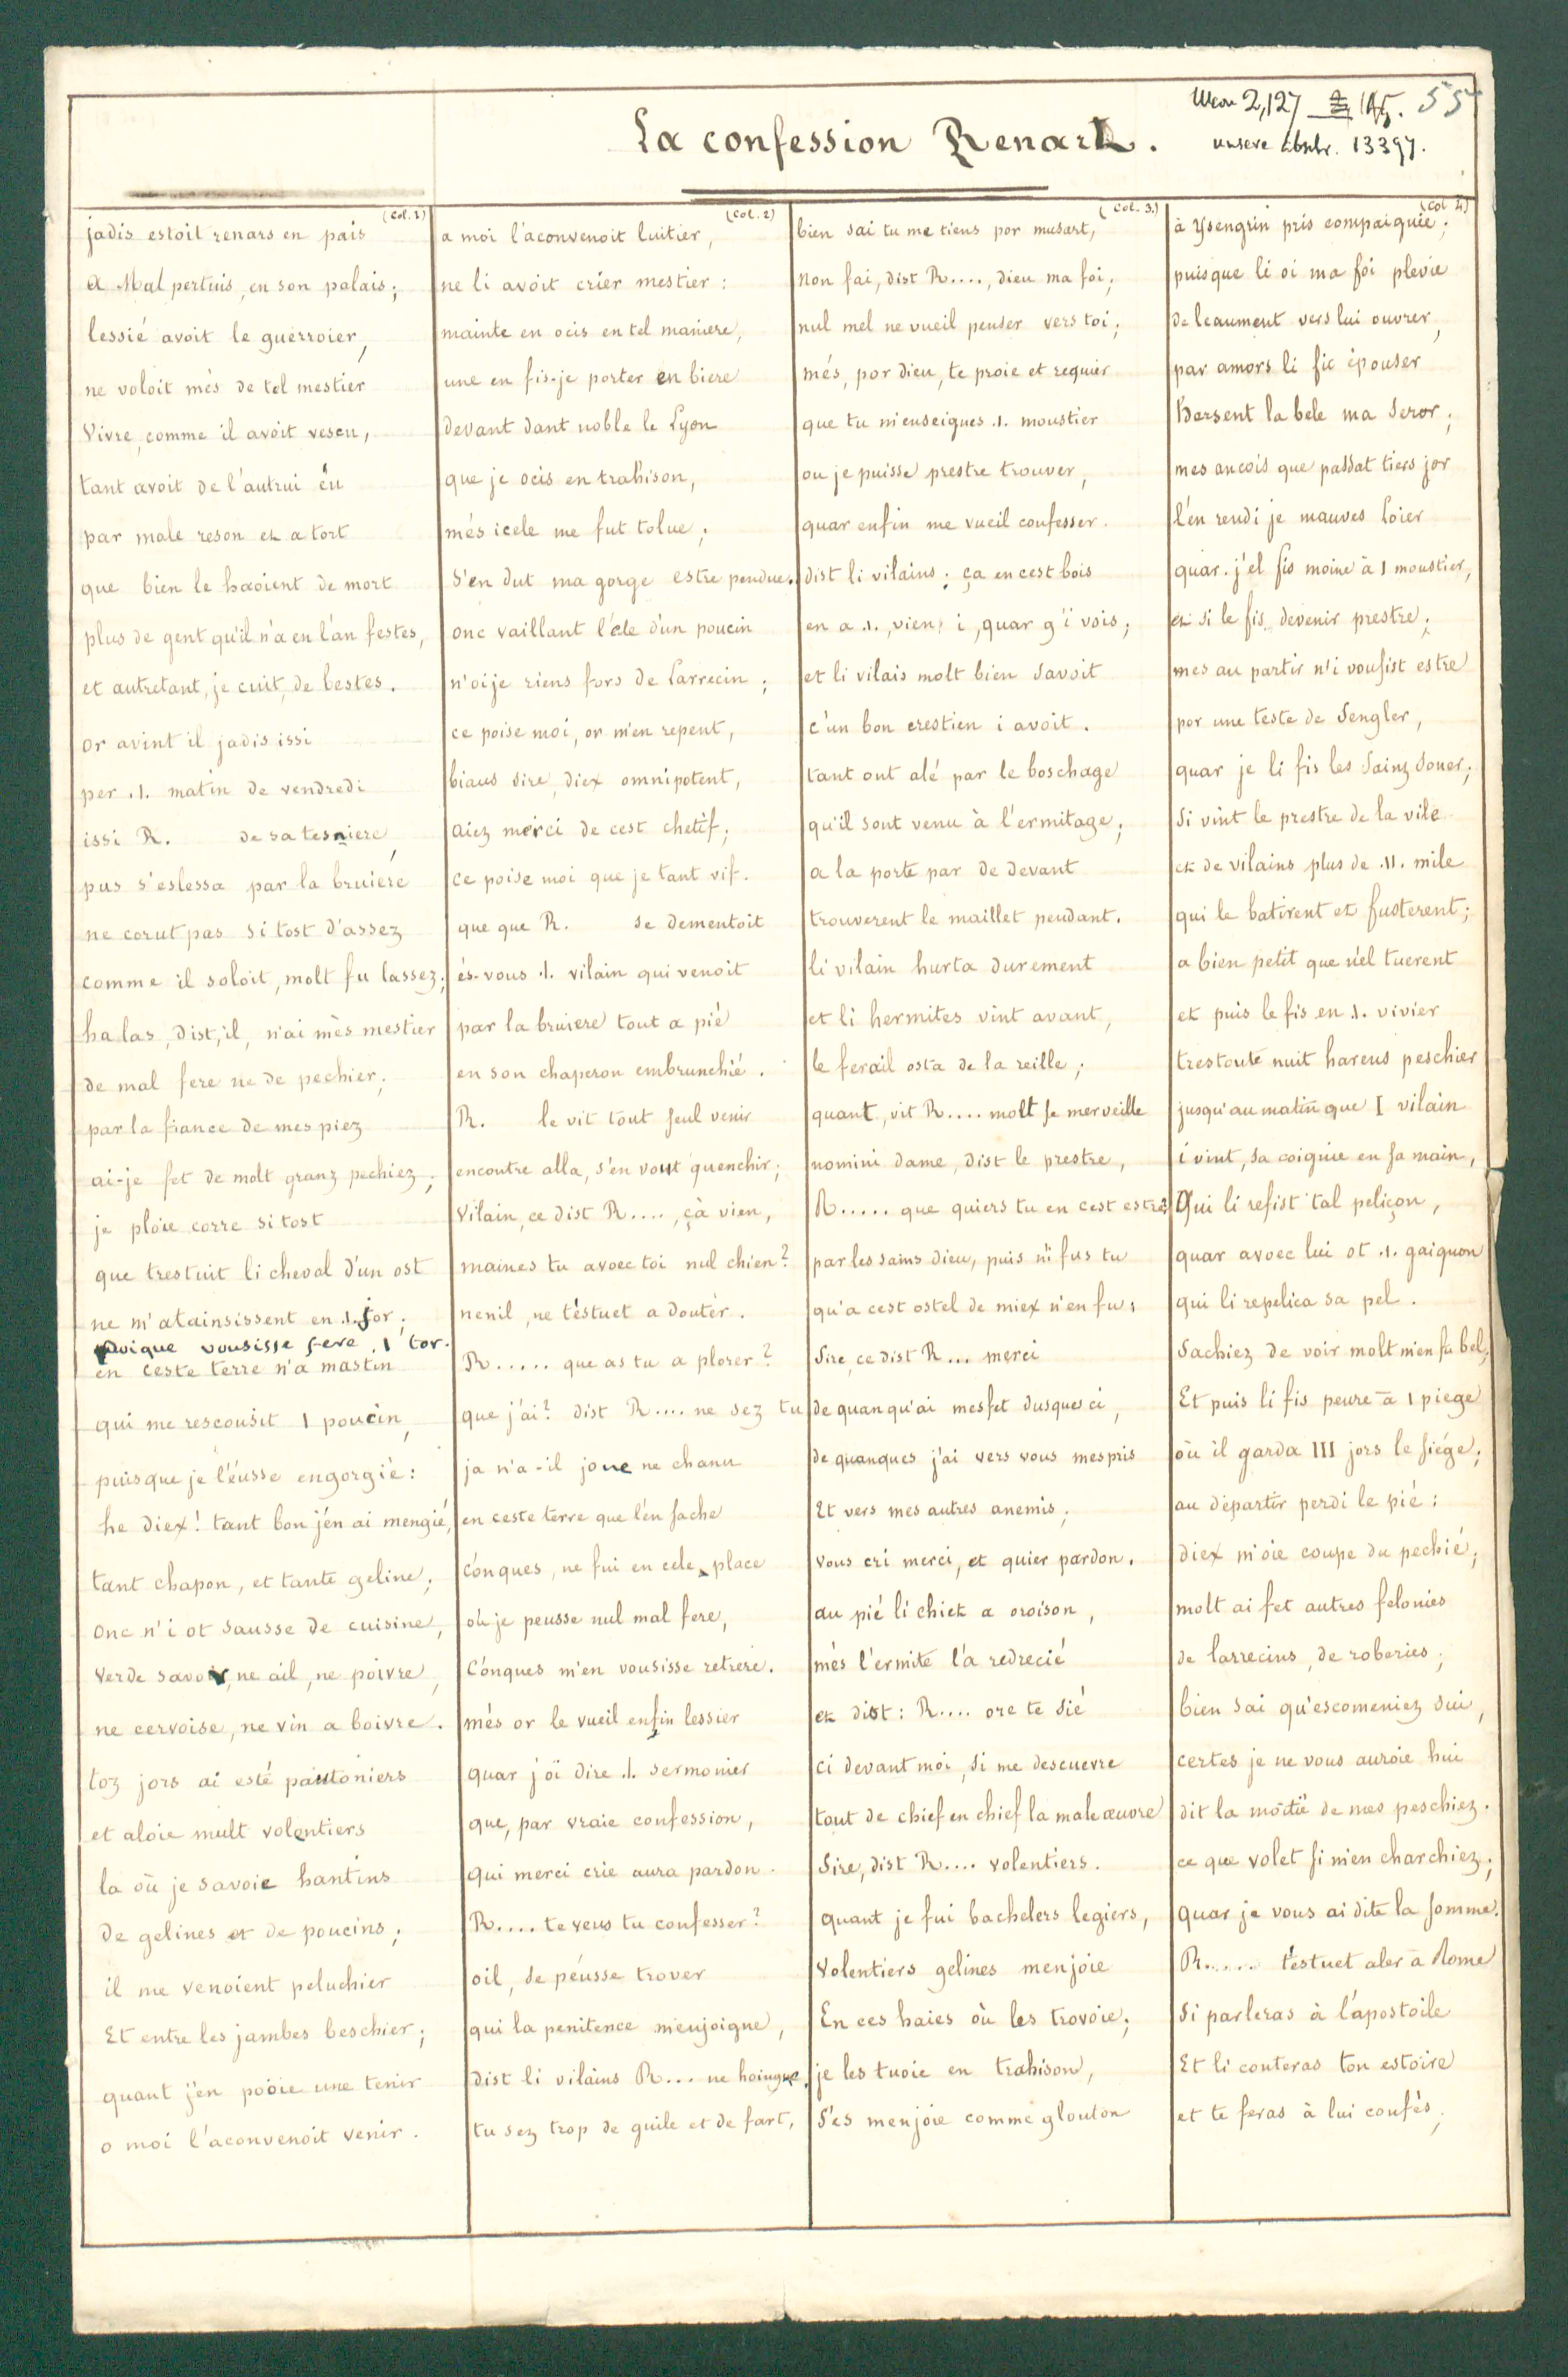 Meon 2,127 145. 55
La confession Renart.
unsere abschr. 13397.
(Col. 1)
jadis estoit renars en pais
A Mal pertuis, en son palais;
lessié avoit le guerroier,
ne voloit mès de tel mestier
Vivre, comme il avoit vescu,
tant avoit de l'autrui ëu
par male reson et a tort
que bien le haoient de mort
plus de gent qu'il n'a en l'an festes,
et autretant, je cuit, de bestes.
or avint il jadis issi
per .1. matin de vendredi
issi R. de sa tesniere,
pus s'eslessa par la bruiere
ne corut pas si tost d'assez
comme il soloit, molt fu lassez;
ha las, dist, il, n'ai mès mestier
de mal fere ne de pechier;
par la fiance de mes piez
ai-je fet de molt granz pechiez;
je ploie corre si tost
que trestuit li cheval d'un ost
ne m'atainsissent en .1. jor;
puique vousisse fere 1 tor.
en ceste terre n'a mastin
qui me rescousit 1 poucin,
puisque je l'éusse engorgié:
he diex! tant bon j'en ai mengié,
tant chapon, et tante geline;
onc n'i ot sausse de cuisine,
verde savor, ne ail, ne poivre,
ne cervoise, ne vin a boivre.
toz jors ai esté pautoniers
et aloie mult volentiers
la où je savoie hantins
De gelines et de poucins;
il me venoient peluchier
Et entre les jambes beschier;
quant j'en pooie une tenir
o moi l'aconvenoit venir.
(Col. 2)
a moi l'aconvenoit luitier,
ne li avoit crier mestier:
mainte en ocis en tel maniere,
une en fis-je porter en biere
devant dant noble le Lyon
que je ocis en trahison,
més icele me fut tolue;
s'en dut ma gorge estre pendue.
onc vaillant l'éle d'un poucin
n'oi je riens fors de Larrecin;
ce poise moi, or m'en repent,
biaus sire, diex omnipotent,
aiez merci de cest chetif;
ce poise moi que je tant vif.
que que R. se dementoit
és-vous .1. vilain qui venoit
par la bruiere tout a pié
en son chaperon embrunchié.
R. le vit tout seul venir
encontre alla, s'en vout guenchir;
Vilain, ce dist R...., çà vien,
maines tu avoec toi nul chien?
nenil, ne t'éstuet a douter.
R..... que as tu a plorer?
que j'ai? dist R.... ne sez tu
ja n'a-il jone ne chanu
en ceste terre que l'en sache
c'onques, ne fui en cele place
où je peusse nul mal fere,
C'onques m'en vousisse retrere.
més or le vueil enfin lessier
quar j'oï dire .1. sermonier
que, par vraie confession,
qui merci crie aura pardon.
R.... te veus tu confesser?
oil, se péusse trover
qui la penitence m'enjoigne,
dist li vilains R... ne hoingne,
tu sez trop de guile et de fart,
(Col. 3.)
bien sai tu me tiens por musart,
non fai, dist R...., dieu ma foi,
nul mel ne vueil penser vers toi;
més, por dieu, te proie et requier
que tu m'enseignes .1. moustier
ou je puisse prestre trouver,
quar enfin me vueil confesser.
dist li vilains; ça en cest bois
en a .1., vien i, quar g'i vois;
et li vilais molt bien savoit
c'un bon crestien i avoit.
tant ont alé par le boschage
qu'il sont venu à l'ermitage;
a la porte par de devant
trouverent le maillet pendant.
li vilain hurta durement
et li hermites vint avant,
le ferail osta de la reille;
quant, vit R.... molt se merveille
nomini dame, dist le prestre,
R..... que quiers tu en cest estre?
par les sains dieu, puis n'i fus tu
qu'a cest ostel de miex n'en fu;
Sire, ce dist R... merci
de quanqu'ai mesfet dusques ci,
de quanques j'ai vers vous mespris
Et vers mes autres anemis;
vous cri merci, et quier pardon.
au pié li chiet a oroison,
més l'ermite l'a redrecié
et dist: R.... ore te sié
ci devant moi, si me descuevre
tout de chief en chief la male œuvre
Sire, dist R.... volentiers.
quant je fui bachelers legiers,
volentiers gelines menjoie
En ces haies où les trovoie;
je les tuoie en trahison,
S'es menjoie comme glouton
(Col 4)
à Ysengrin pris compaignie;
puisque li oi ma foi plevie
de leaument vers lui ouvrer,
par amors li fic épouser
Hersent la bele ma seror;
mes ancois que passat tiers jor
l'en rendi je mauves Loier
quar. j'el fis moine à 1 moustier,
et si le fis devenir prestre;
mes au partir n'i vousist estre
por une teste de Sengler,
quar je li fis les Sainz soner;
Si vint le prestre de la vile
et de vilains plus de .11. mile
qui le batirent et fusterent;
a bien petit que n'el tuerent
et puis le fis en .1. vivier
trestoute nuit harens peschier
jusqu'au matin que I vilain
i vint, sa coignie en sa main,
Qui li refist tal peliçon,
quar avoec lui ot .1. gaignon
qui li repelica sa pel.
Sachiez de voir molt m'en fu bel,
Et puis li fis peure à 1 piege
où il garda III jors le siége;
au departir perdi le pié:
diex m'oie coupe du pechié;
molt ai fet autres felonies
de larrecins, de roberies;
bien sai qu'escomeniez sui,
certes je ne vous auroie hui
dit la moitïé de mes peschiez.
ce que volet si m'en charchiez;
quar je vous ai dite la somme.
R..... t'estuet aler à Rome
Si parleras à l'apostoile
Et li conteras ton estoire
et te feras à lui confés,